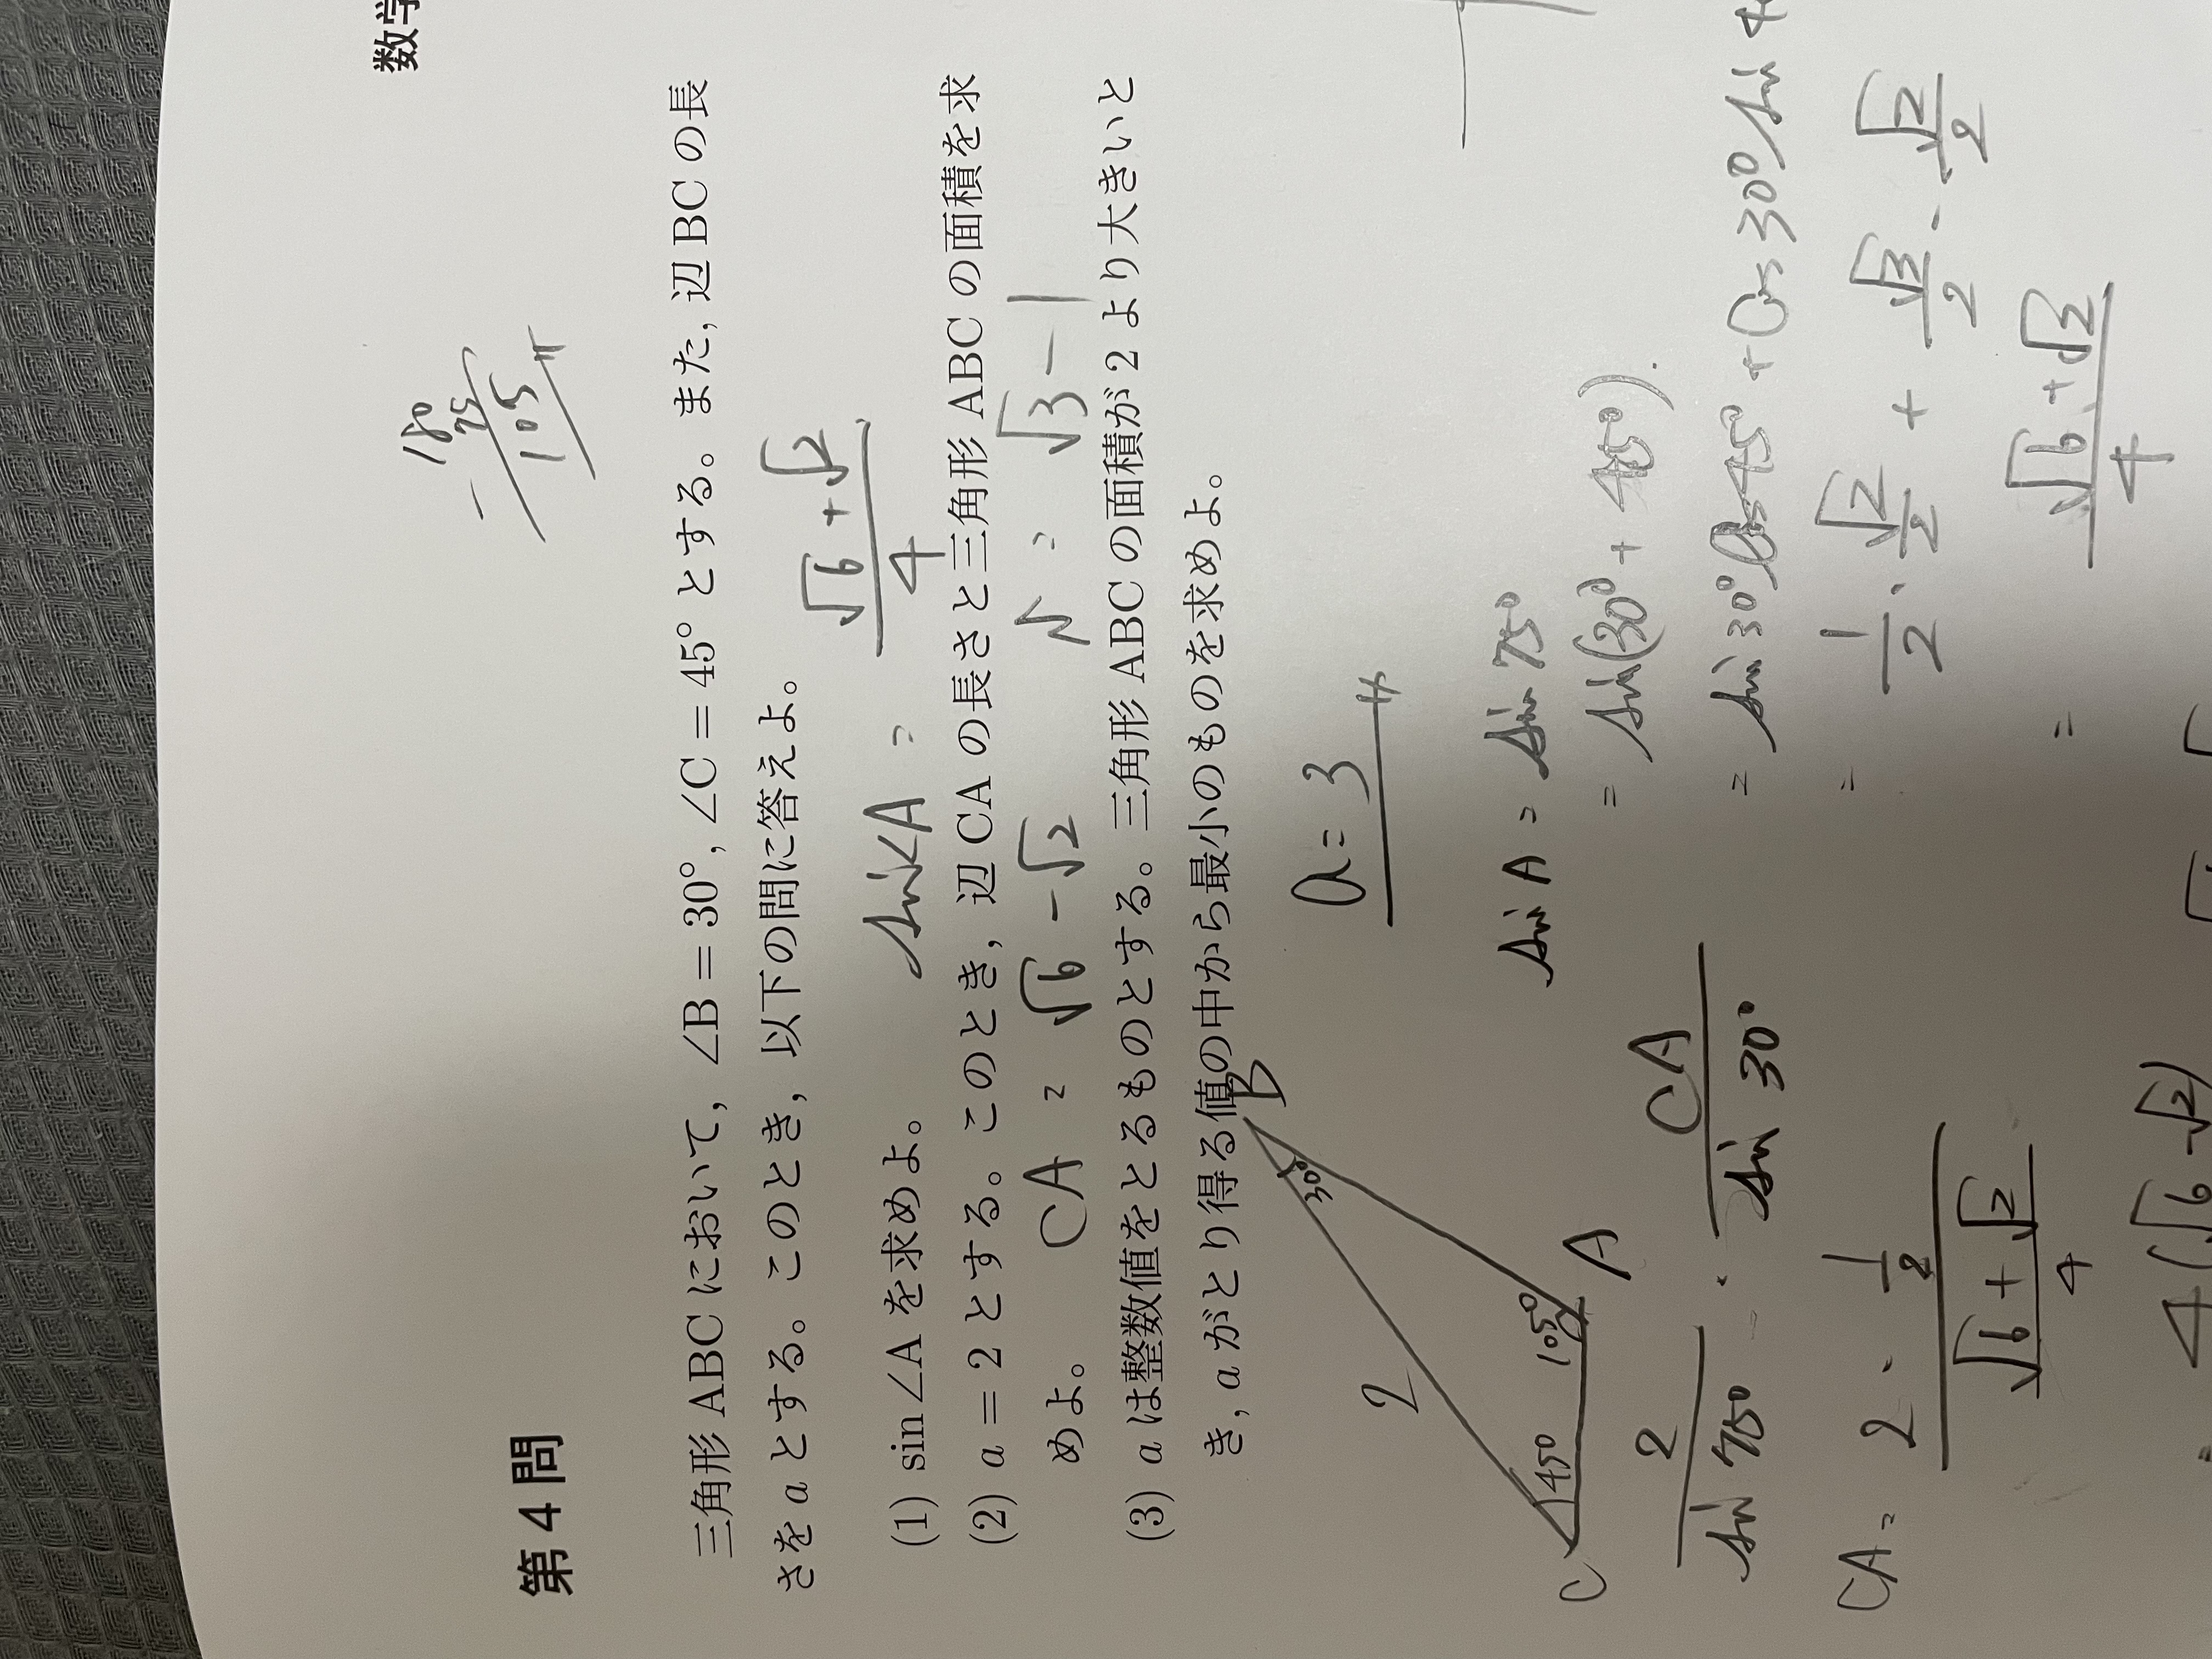 数学
180
75
105
第4問
三角形 ABC において, ∠B = 30°, ∠C = 45° とする。また, 辺 BC の長
さを a とする。このとき, 以下の問に答えよ。
(1) sin∠A を求めよ。
sin∠A = √6 + √2 / 4
(2) a = 2 とする。このとき, 辺 CA の長さと三角形 ABC の面積を求
めよ。
CA = √6 - √2
= √3 - 1
(3) a は整数値をとるものとする。三角形 ABC の面積が 2 より大きいと
き, a がとり得る値の中から最小のものを求めよ。
a = 3
B
30°
2
105°
A
45°
C
sin A = sin 75°
= sin(30° + 45°).
= sin 30° cos 45° + cos 30° sin 4
= 1/2 · √2/2 + √3/2 · √2/2
= √6 + √2 / 4
2 / sin 75° CA / sin 30°
CA = 2 · 1/2 / √6 + √2 / 4
4(√6 - √2)